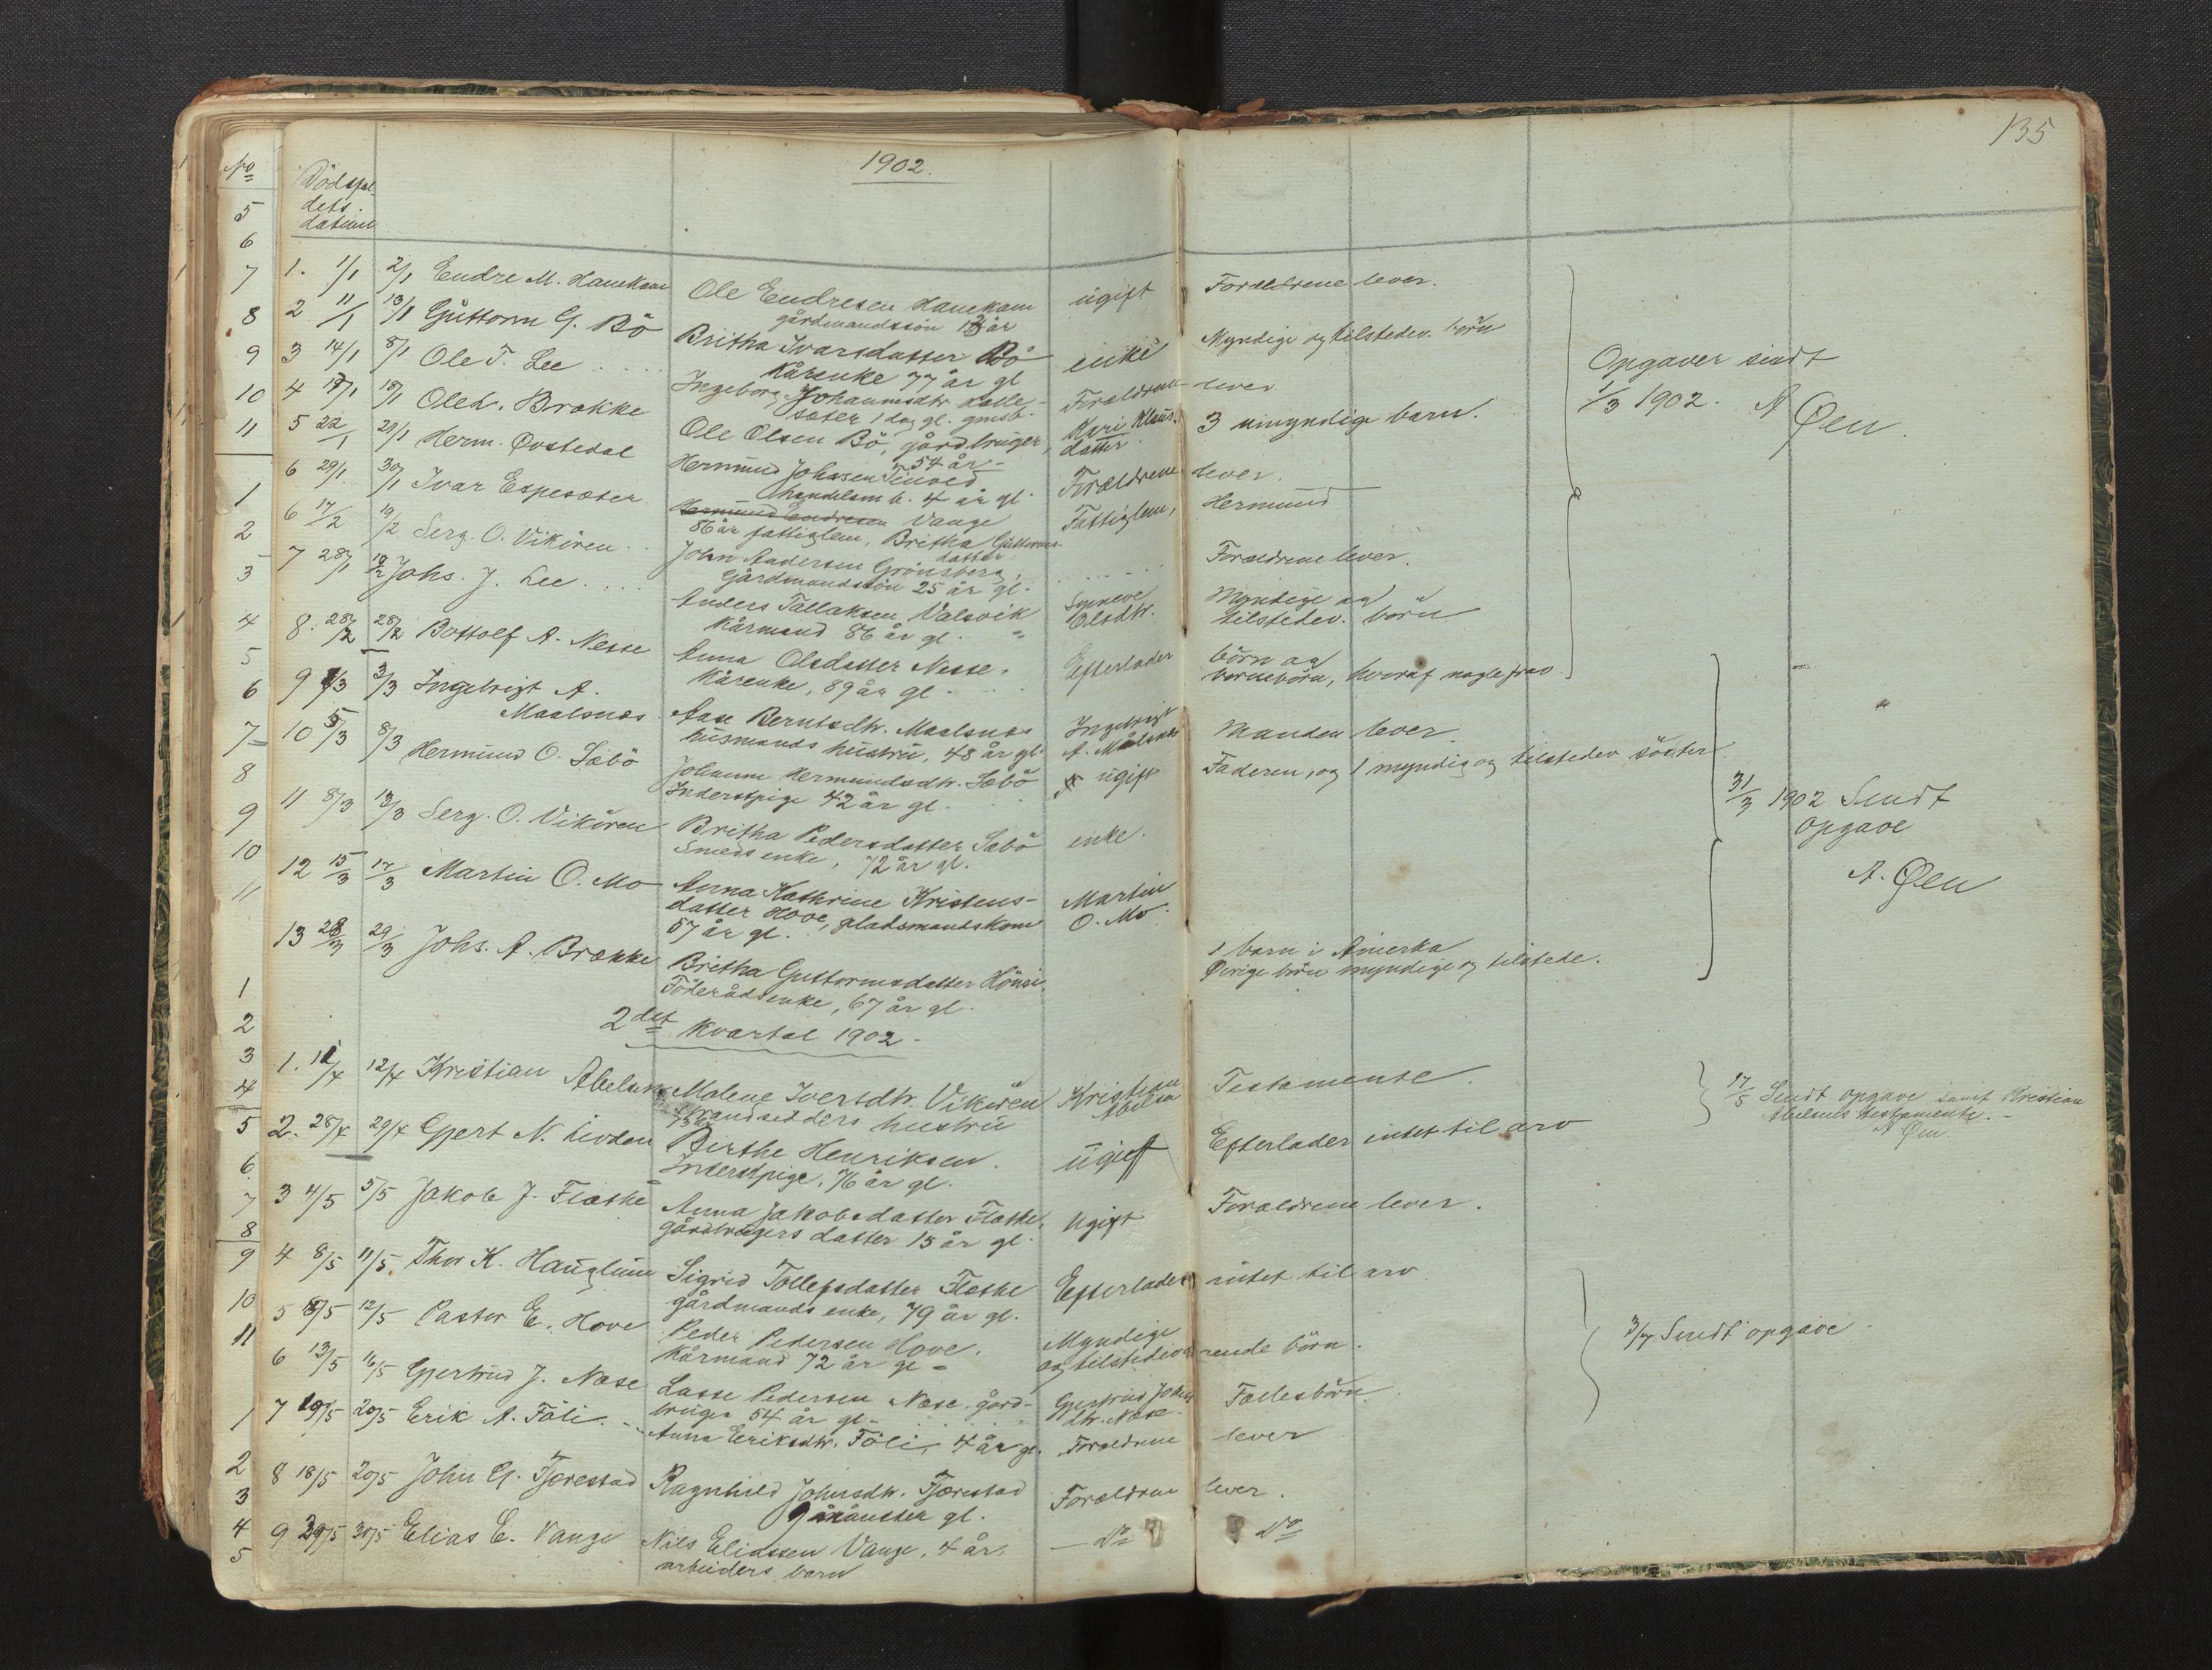 135
1902.
No
Dödsfal
dets.
datum
1. 1/1 2/1 Endre M. Hanekam Ole Endresen Hanekam ugift Forældrene lever.
gårdmandssön år
2 11/1 13/1 Guttorm G. Bö Britha Ivarsdatter Bö enke Myndige og tilstedev. börn
Kårenke 77 år gl
3 14/1 8/1 Ole T. Lee Ingeborg Johannesdtr Forældrene lever
sæter 1 dag gl. gmsb.
4 18/1 Ole L. Brække Ole Olsen Bö, gårdbruger, Kari Klaus. 3 umyndige barn.
54 år datter
5 22/1 29/1 Herm. Övstedal Hermund Johnsen Tenved Forældrene lever.
handelsm b. 4 år gl.
6 29/1 30/1 Ivar Espesæter Hermund Endresen Vange Fattiglem, Hermund
86 år fattiglem, Britha Guttorms-
datter
6 17/2 19/2 Serg. O. Vikören John Andersen Grönsberg, Forældrene lever.
Gårdmandssön 25 år gl.
7 28/1 Johs. J. Lee Anders Tallaksen Valsvik Synneve Myndige og
Kårmand 86 år gl. Olsdtr. tilstedev. börn
8. 28/2 28/2 Bottolf A. Nesse Anna Olsdatter Nesse. Efterlader börn og
Kårenke, 89 år gl. barnebörn, hvoraf nogle frav
Opgaver sendt
1/3 1902. A Öen.
9 1/3 3/3 Ingebrigt A.
Maalsnæs Aase Berntsdtr. Maalsnæs Ingebrigt Manden lever.
husmands hustru, 48 år gl. A. Målsnæs
10 5/3 8/3 Hermund O. Sæbö Johanne Hermundsdtr. Sæbö ugift Faderen, og 1 myndig og tilstedev söster
Inderstpige 42 år gl.
11 8/3 13/3 Serg. O. Vikören Britha Pedersdatter Sæbö enke.
Smeds enke, 72 år gl.
12 15/3 17/3 Martin O. Mo Anna Kathrine Kristens- Martin
datter Hove, pladsmandskone O. Mo.
57 år gl.
13 28/3 29/3 Johs. A. Brække Britha Guttormsdatter Hönsi. 1 barn i Amerka
Föderådsenke, 67 år gl. Övrige börn myndige og tilstede.
31/3 1902 Sendt
opgave
A. Öen
2det Kvartal 1902.
1. 11/4 12/4 Kristian Abelsen Malene Iversdtr. Vikören Kristian Testamente.
Strandsidders hustru Abelsen
17/5 Sendt opgave samt Kristian
Abelsens testamente.
A Öen.
2. 28/4 29/4 Gjert N. Livdan Birthe Henriksen. ugift Efterlader intet til arv
Inderstpige, 76 år gl.
3 4/5 5/5 Jakob J. Flæthe Anna Jakobsdatter Flæthe, Ugift Forældrene lever.
gårdbrugers datter 15 år gl.
4 8/5 11/5. Thor K. Hauglum Sigrid Tollefsdatter Flæthe Efterlader intet til arv
gårdmands enke, 79 år gl.
5 8/5 12/5 Pastor E. Hove Peder Pedersen Hove. Myndige
Kårmand 72 år gl og tilstedeværende börn.
3/7 Sendt opgave
6 13/5 16/5 Gjertrud J. Næse Lasse Pedersen Næse, gård- Gjertrud Johns Fællesbörn.
bruger 54 år gl. dtr. Næse.
7 19/5 20/5 Erik A. Föli. Anna Eriksdtr. Föli, 4 år gl. Forældrene lever
8 18/5 20/5 John G. Tjærestad Ragnhild Johnsdtr. Tjærestad Forældrene lever.
9 måneder gl.
9 29/5 30/5 Elias E. Vange Nils Eliassen Vange, 4 år, Do Do
arbeiders barn
5
6
7
8
9
10
11
1
2
3
4
5
6
7
8
9
10
11
1
2
3
4
5
6.
7
8
9
10
11
1
2
3
4
5